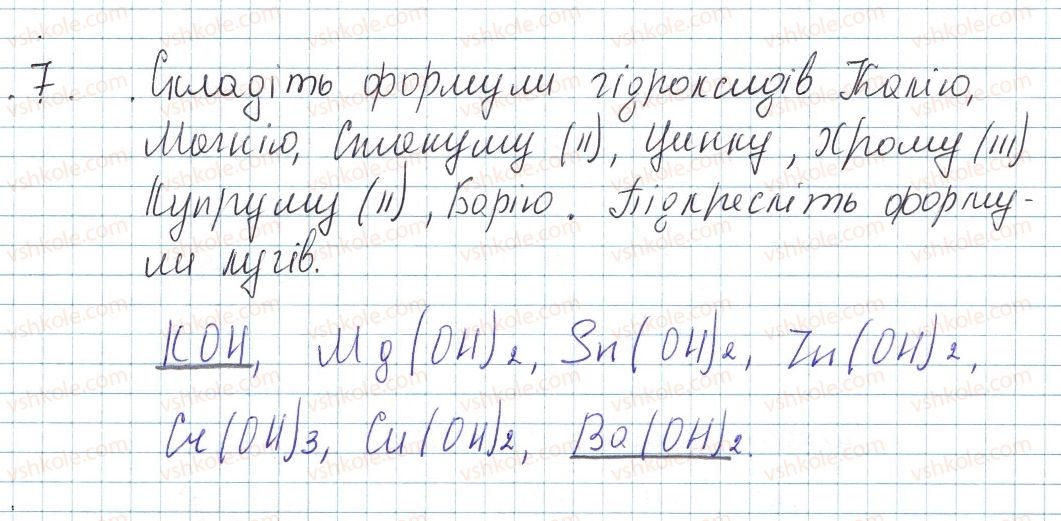 7. Складіть формули гідроксидів Калію,
Магнію, Стануму (II), Цинку, Хрому (III)
Купруму (II), Барію. Підкресліть форму-
ли лугів.
KOH, Mg(OH)2, Sn(OH)2, Zn(OH)2,
Cr(OH)3, Cu(OH)2, Ba(OH)2.